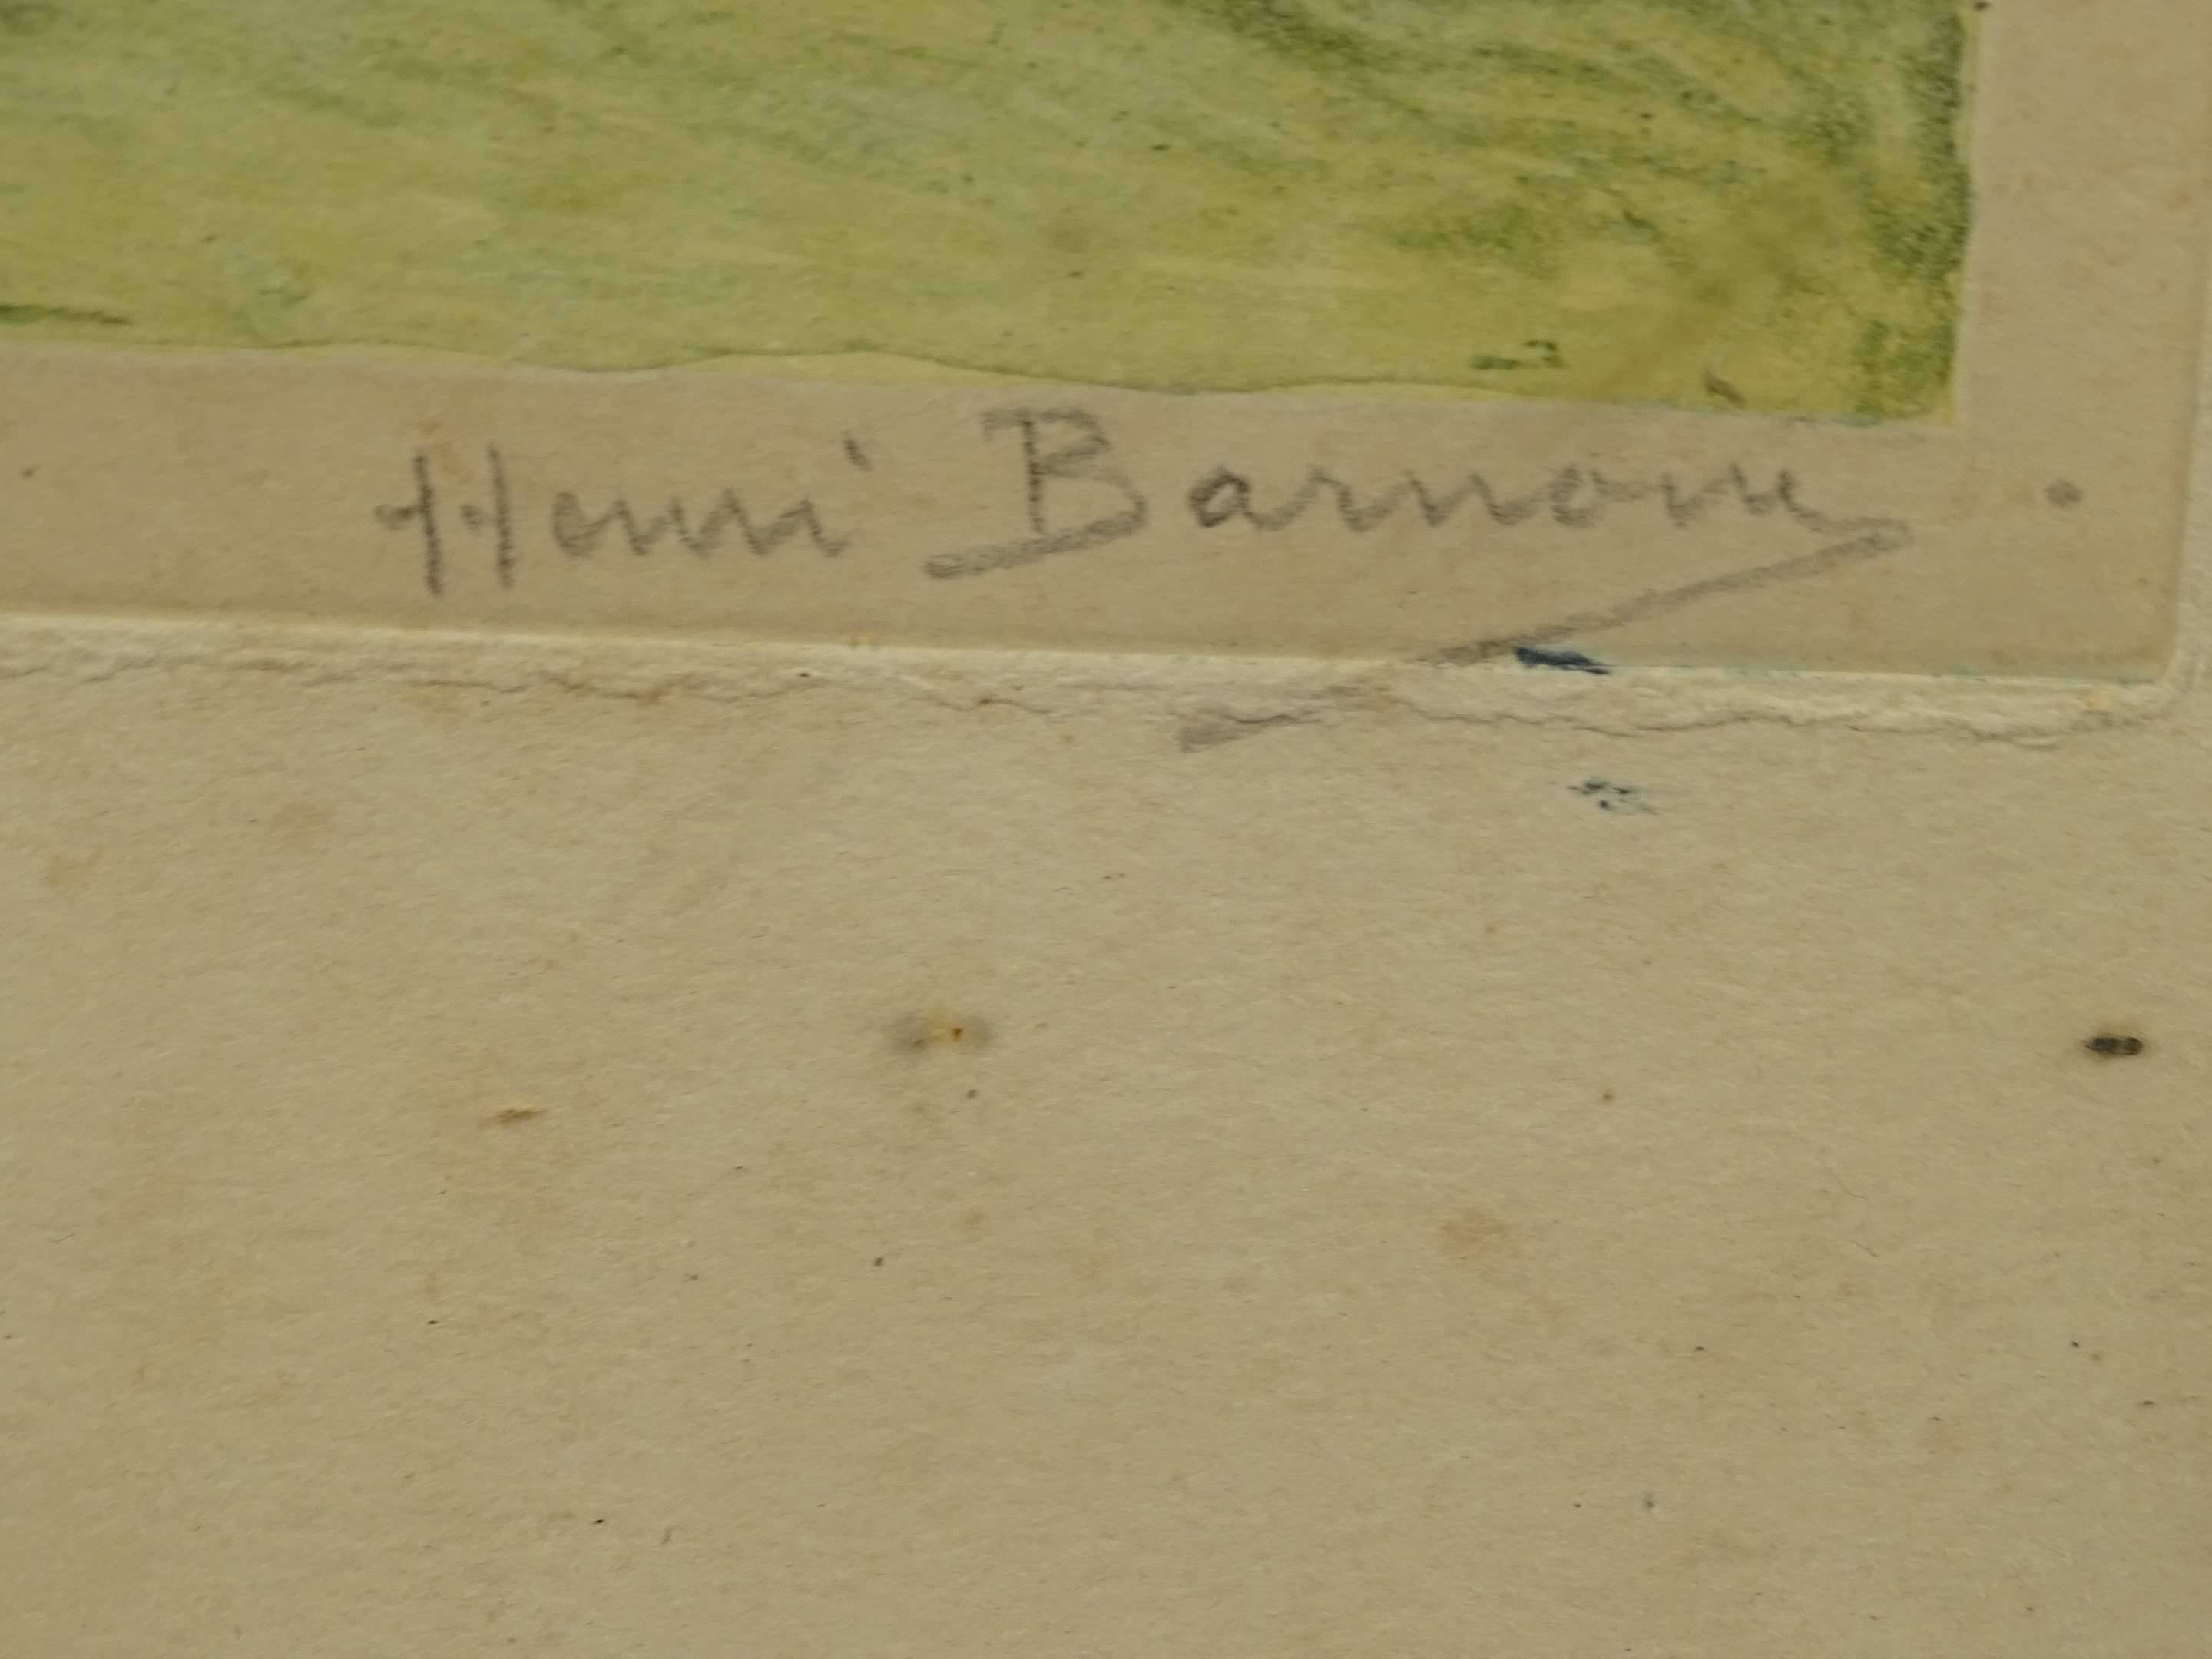 Henri Barnoin